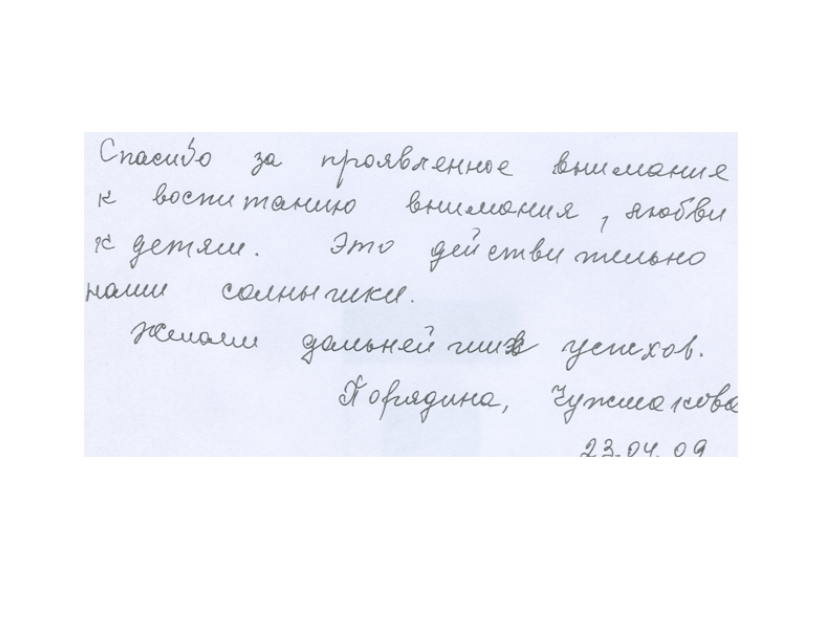 Спасибо за проявленное внимания
к воспитанию внимания, любви
к детям. Это действительно
наши солнышки.
Желаем дальнейших успехов.
Порядина, Чужмакова
23.04.09